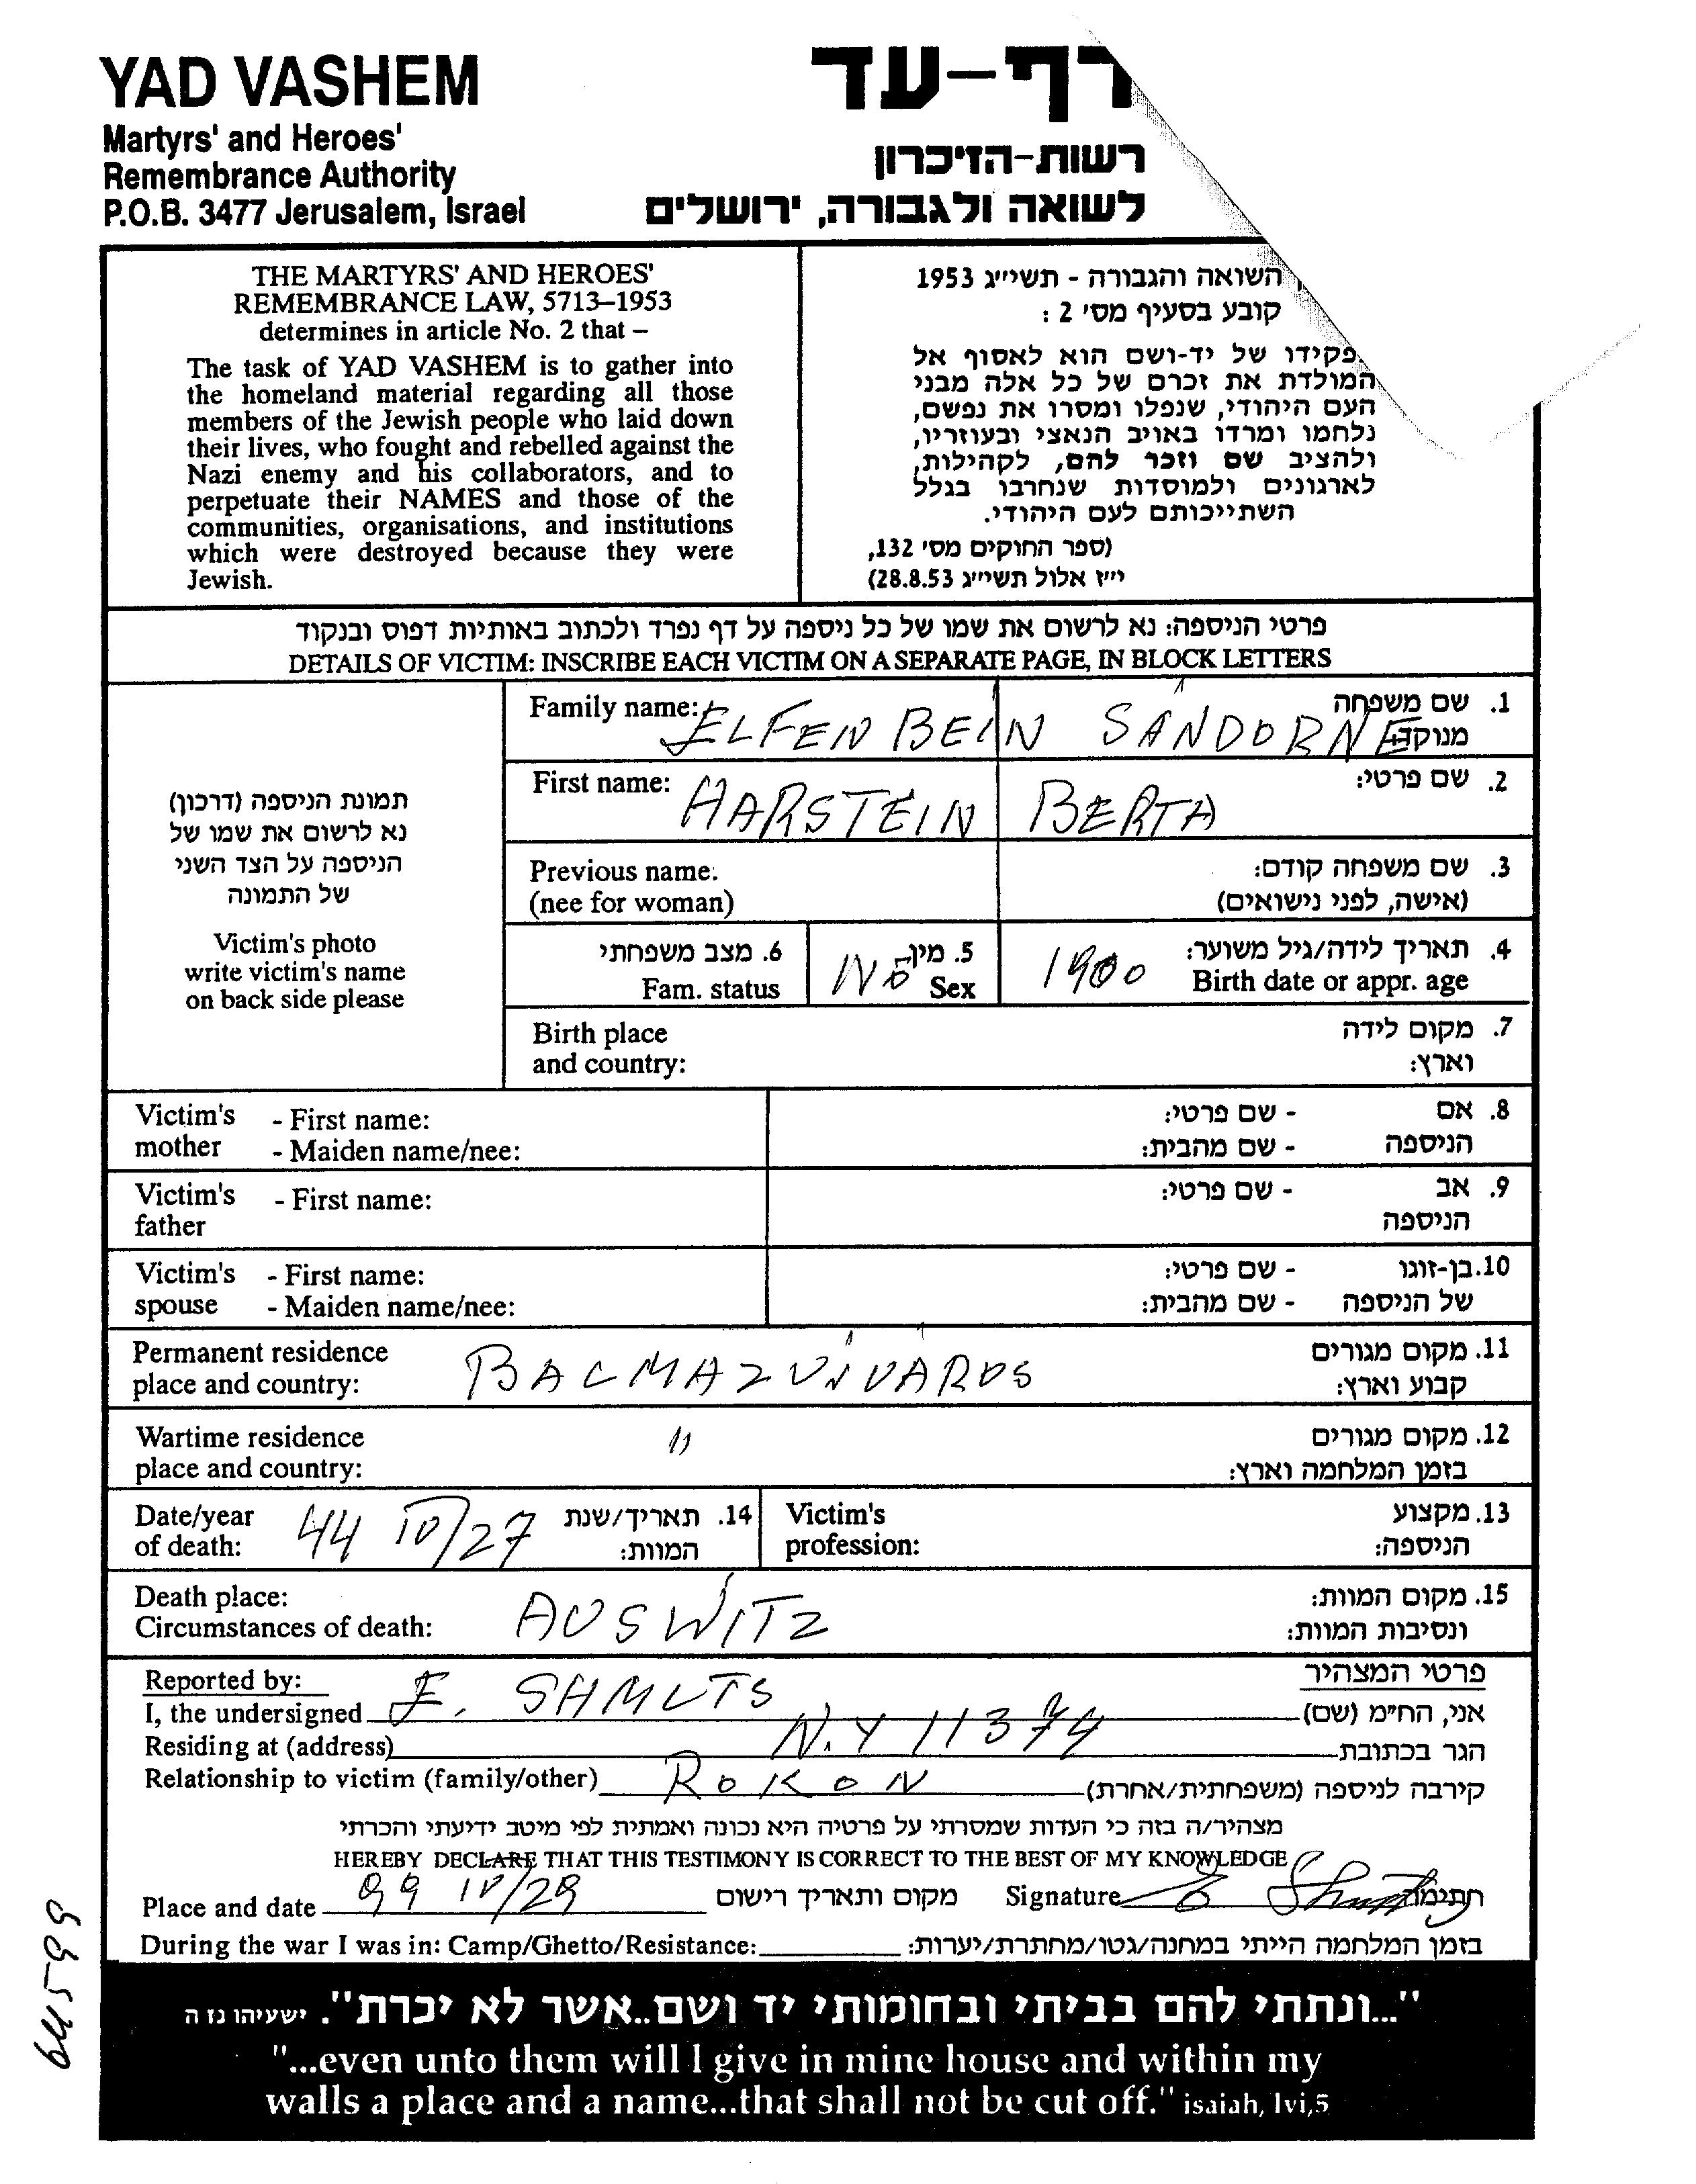 YAD VASHEM
Martyrs' and Heroes'
Remembrance Authority
P.O.B. 3477 Jerusalem, Israel
רף-עד
רשות-הזיכרון
לשואה ולגבורה, ירושלים
THE MARTYRS' AND HEROES'
REMEMBRANCE LAW, 5713–1953
determines in article No. 2 that –
The task of YAD VASHEM is to gather into
the homeland material regarding all those
members of the Jewish people who laid down
their lives, who fought and rebelled against the
Nazi enemy and his collaborators, and to
perpetuate their NAMES and those of the
communities, organisations, and institutions
which were destroyed because they were
Jewish.
השואה והגבורה - תשי״ג 1953
קובע בסעיף מס' 2 :
פקידו של יד-ושם הוא לאסוף אל
המולדת את זכרם של כל אלה מבני
העם היהודי, שנפלו ומסרו את נפשם,
נלחמו ומרדו באויב הנאצי ובעוזריו,
ולהציב שם וזכר להם, לקהילות,
לארגונים ולמוסדות שנחרבו בגלל
השתייכותם לעם היהודי.
(ספר החוקים מס' 132,
י״ז אלול תשי״ג 28.8.53)
פרטי הניספה: נא לרשום את שמו של כל ניספה על דף נפרד ולכתוב באותיות דפוס ובנקוד
DETAILS OF VICTIM: INSCRIBE EACH VICTIM ON A SEPARATE PAGE, IN BLOCK LETTERS
תמונת הניספה (דרכון)
נא לרשום את שמו של
הניספה על הצד השני
של התמונה
Victim's photo
write victim's name
on back side please
Family name: ELFENBEIN SÁNDORNE 1. שם משפחה
מנוקד:
First name: HARSTEIN BERTA 2. שם פרטי:
Previous name: 3. שם משפחה קודם:
(nee for woman) (אישה, לפני נישואים)
6. מצב משפחתי 5. מין 4. תאריך לידה/גיל משוער:
Fam. status NÖ Sex 1900 Birth date or appr. age
Birth place 7. מקום לידה
and country: וארץ:
Victim's - First name: - שם פרטי: 8. אם
mother - Maiden name/nee: - שם מהבית: הניספה
Victim's - First name: - שם פרטי: 9. אב
father הניספה
Victim's - First name: - שם פרטי: 10. בן-זוגו
spouse - Maiden name/nee: - שם מהבית: של הניספה
Permanent residence 11. מקום מגורים
place and country: BALMAZUJVÁROS קבוע וארץ:
Wartime residence " 12. מקום מגורים
place and country: בזמן המלחמה וארץ:
Date/year 44 IV/27 14. תאריך/שנת Victim's 13. מקצוע
of death: המוות: profession: הניספה:
Death place: AUSWITZ 15. מקום המוות:
Circumstances of death: ונסיבות המוות:
Reported by: פרטי המצהיר
I, the undersigned E. SHMLTS אני, הח״מ (שם)
Residing at (address) N.Y 11374 הגר בכתובת
Relationship to victim (family/other) ROKON קירבה לניספה (משפחתית/אחרת)
מצהיר/ה בזה כי העדות שמסרתי על פרטיה היא נכונה ואמתית לפי מיטב ידיעתי והכרתי
HEREBY DECLARE THAT THIS TESTIMONY IS CORRECT TO THE BEST OF MY KNOWLEDGE
Place and date 99 IV/29 מקום ותאריך רישום Signature חתימה
During the war I was in: Camp/Ghetto/Resistance: בזמן המלחמה הייתי במחנה/גטו/מחתרת/יערות:
64599
"...ונתתי להם בביתי ובחומותי יד ושם..אשר לא יכרת". ישעיהו נו ה
"...even unto them will I give in mine house and within my
walls a place and a name...that shall not be cut off." isaiah, lvi,5